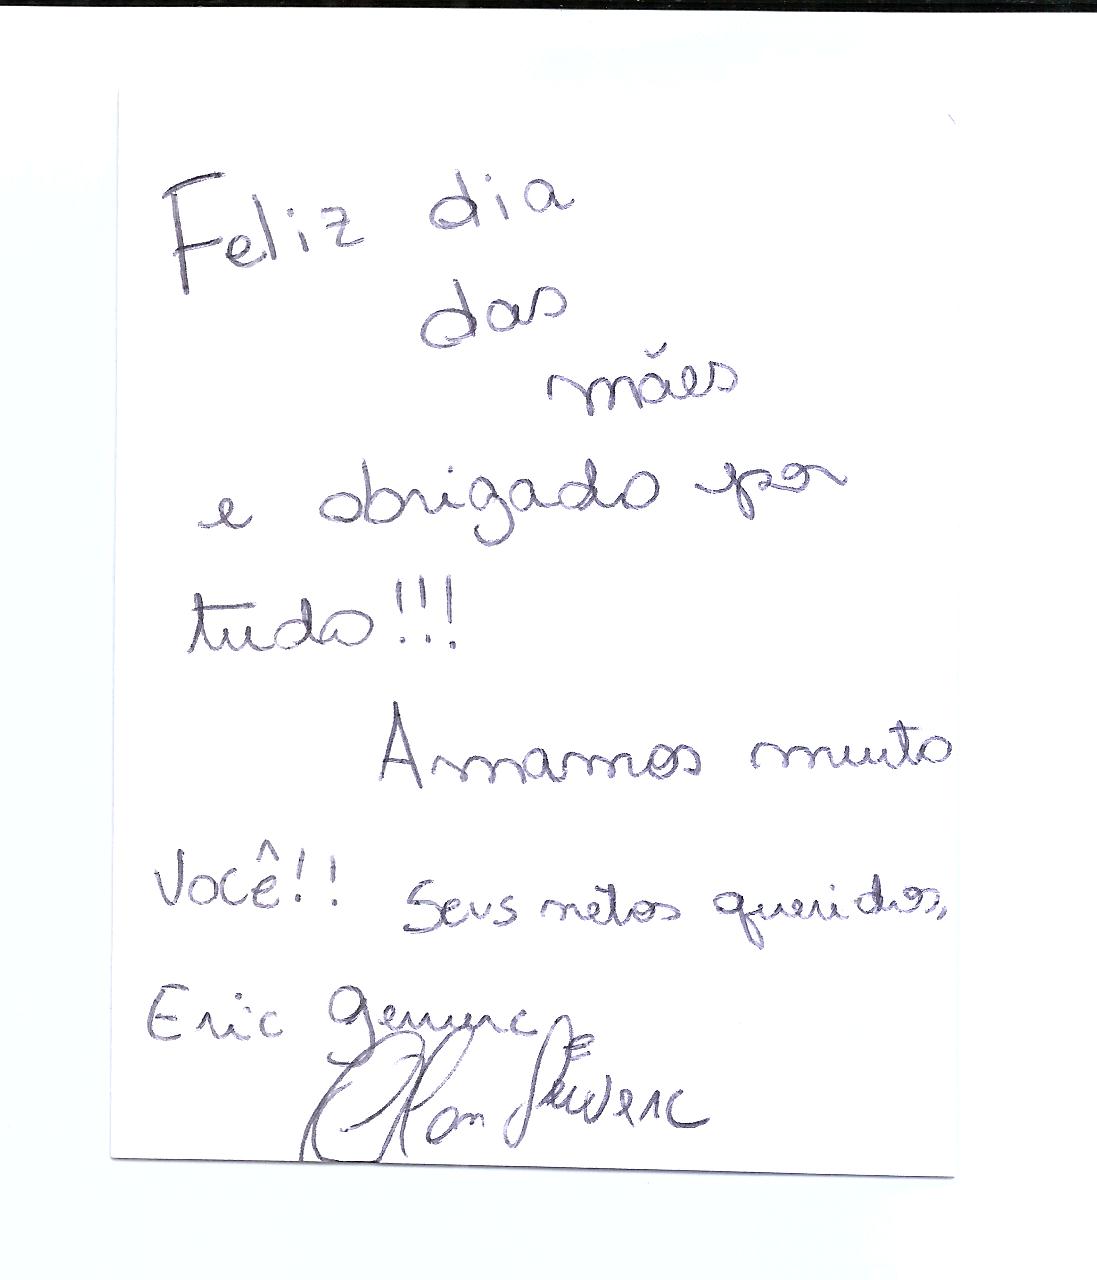 Feliz dia
das
mães
e obrigado por
tudo!!!
Amamos muito
você!! Seus netos queridos,
Eric
e
Alan